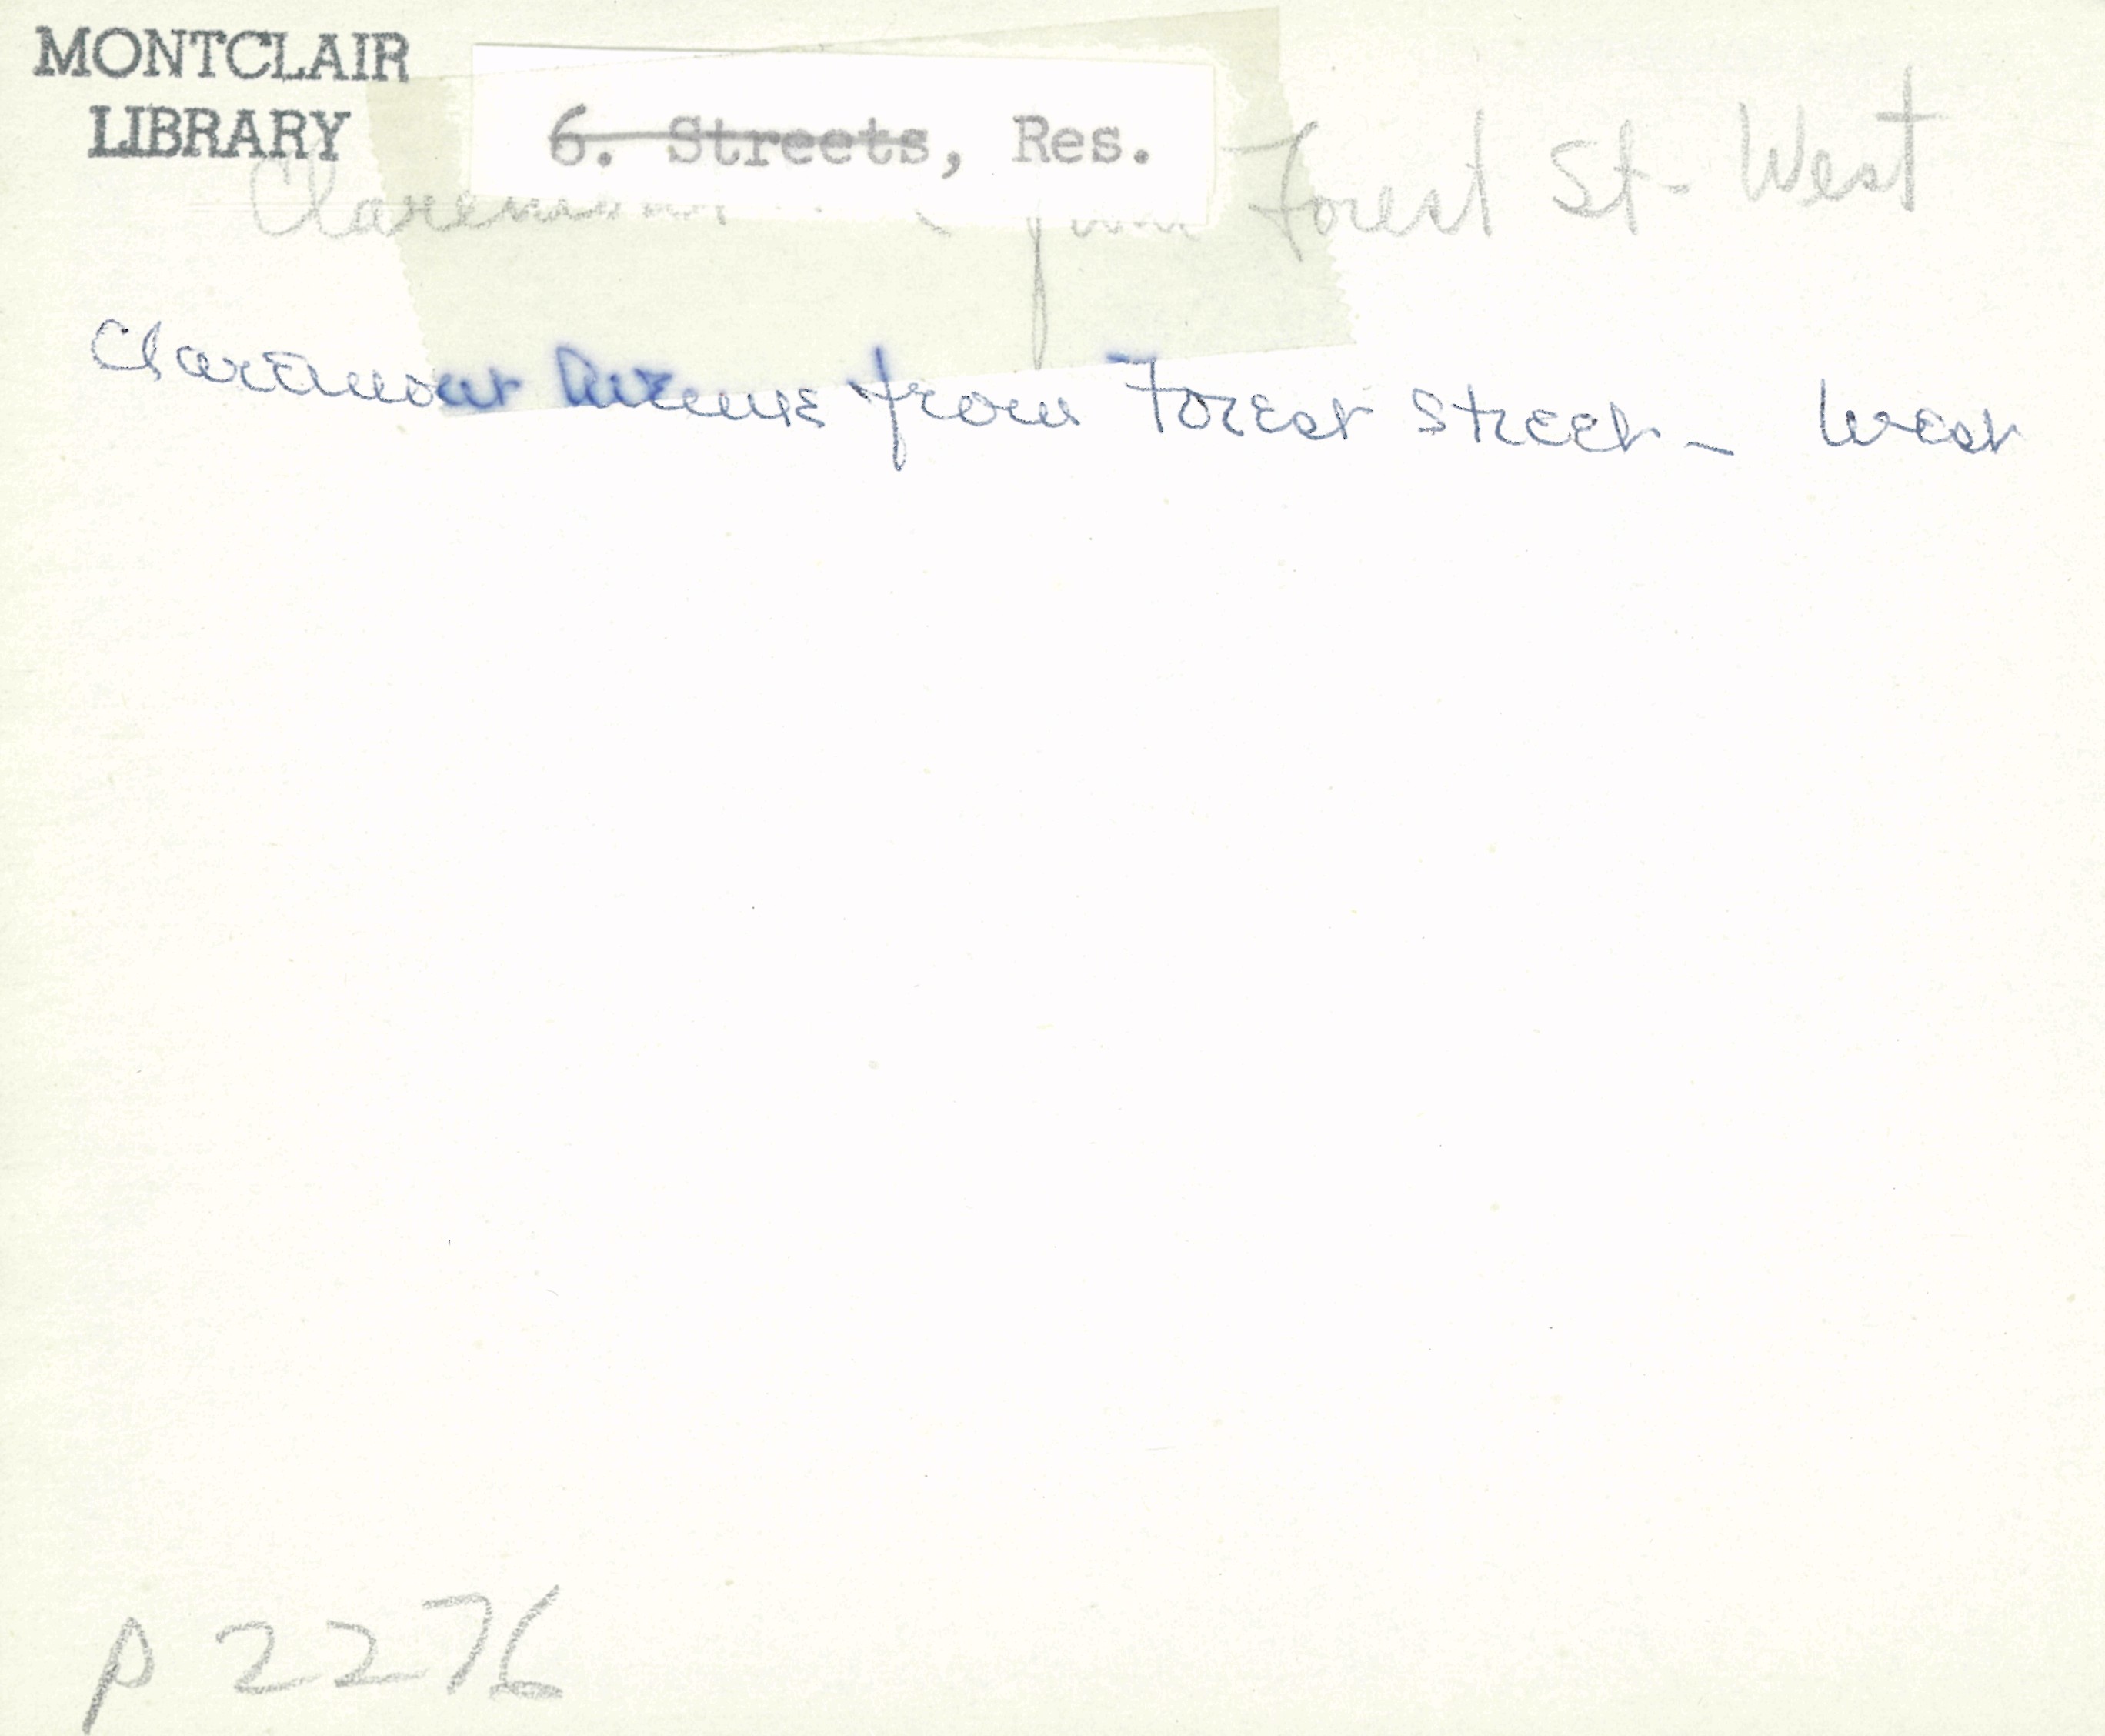 MONTCLAIR
LIBRARY
6. Streets, Res.
Claremont from Forest St. West
Claremont Avenue from Forest Street - West
p 2276